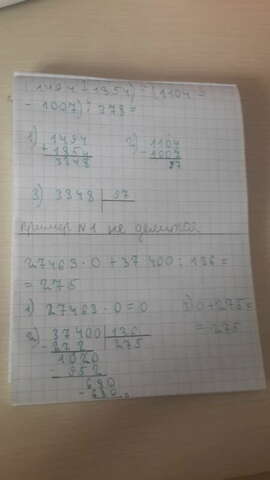 (1494+1354):(1104-
- 1007):373=
1) 1494 2) 1104
+ 1854 - 1007
3348 97
3) 3348 | 97
пример №1 не делится.
27463 · 0 + 37 400 : 136 =
= 275
1) 27463 · 0 = 0 3) 0+275=
= 275
2) 37400 | 136
- 272 275
1020
- 952
680
- 680